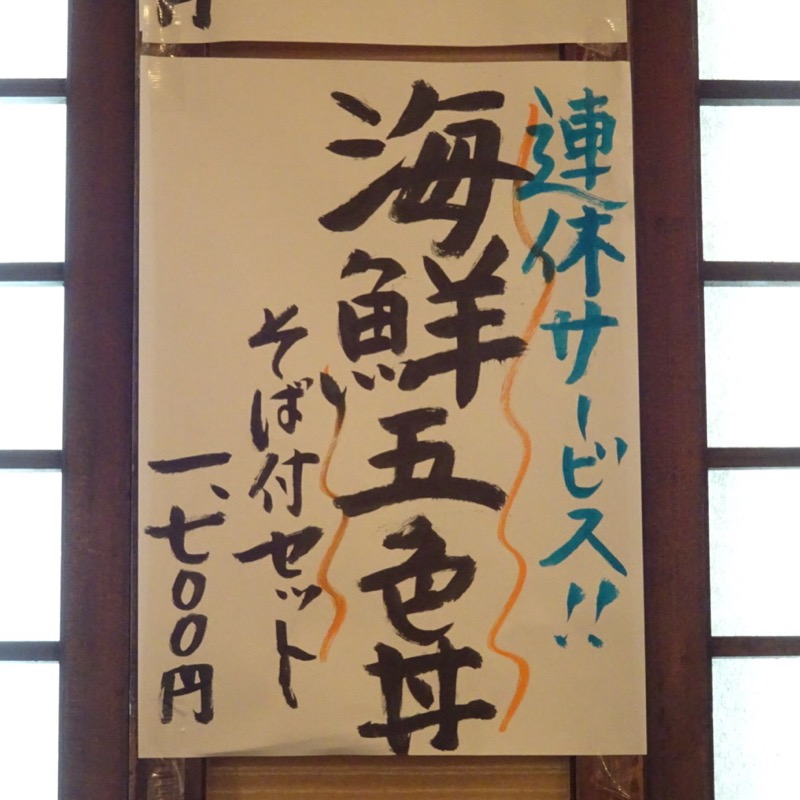 円
連休サービス!!
海鮮五色丼
そば付セット
一、七〇〇円